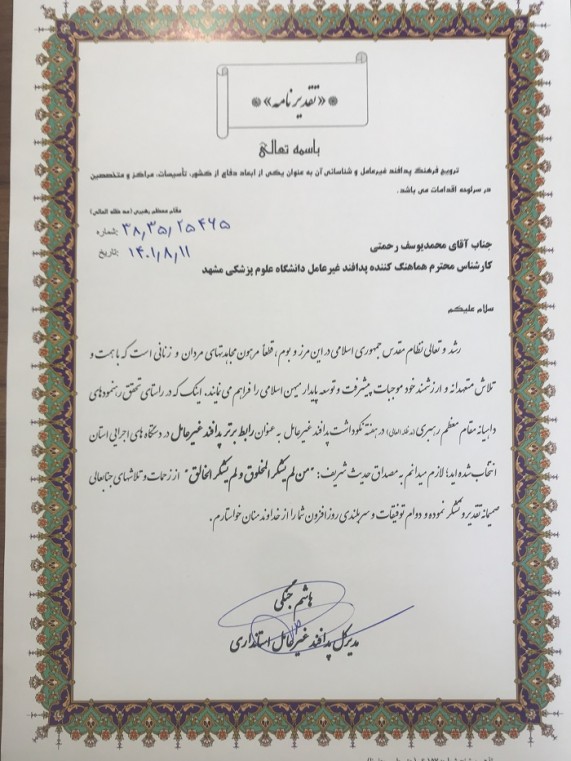 «تقدیرنامه»
باسمه تعالی
ترویج فرهنگ پدافند غیرعامل و شناسائی آن به عنوان یکی از ابعاد دفاع از کشور، تأسیسات، مراکز و متخصصین
در سرلوحه اقدامات می باشد.
مقام معظم رهبری (مد ظله العالی)
شماره: ۳۸,۳۵,۲۵۴۶۵
تاریخ: ۱۴۰۱,۸,۱۱
جناب آقای محمدیوسف رحمتی
کارشناس محترم هماهنگ کننده پدافند غیرعامل دانشگاه علوم پزشکی مشهد
سلام علیکم
رشد و تعالی نظام مقدس جمهوری اسلامی در این مرز و بوم، قطعاً مرهون مجاهدتهای مردان و زنانی است که با همت و
تلاش متعهدانه و ارزشمند خود موجبات پیشرفت و توسعه پایدار میهن اسلامی را فراهم می نمایند، اینک که در راستای تحقق رهنمودهای
داهیانه مقام معظم رهبری (مد ظله العالی) در هفته نکوداشت پدافند غیرعامل به عنوان رابط برتر پدافند غیرعامل در دستگاه های اجرایی استان
انتخاب شده اید؛ لازم میدانم به مصداق حدیث شریف: "من لم یشکر المخلوق و لم یشکر الخالق" از زحمات و تلاشهای جنابعالی
صمیمانه تقدیر و تشکر نموده و دوام توفیقات و سربلندی روزافزون شما را از خداوند منان خواستارم.
هاشم جنگی
مدیرکل پدافند غیرعامل استانداری